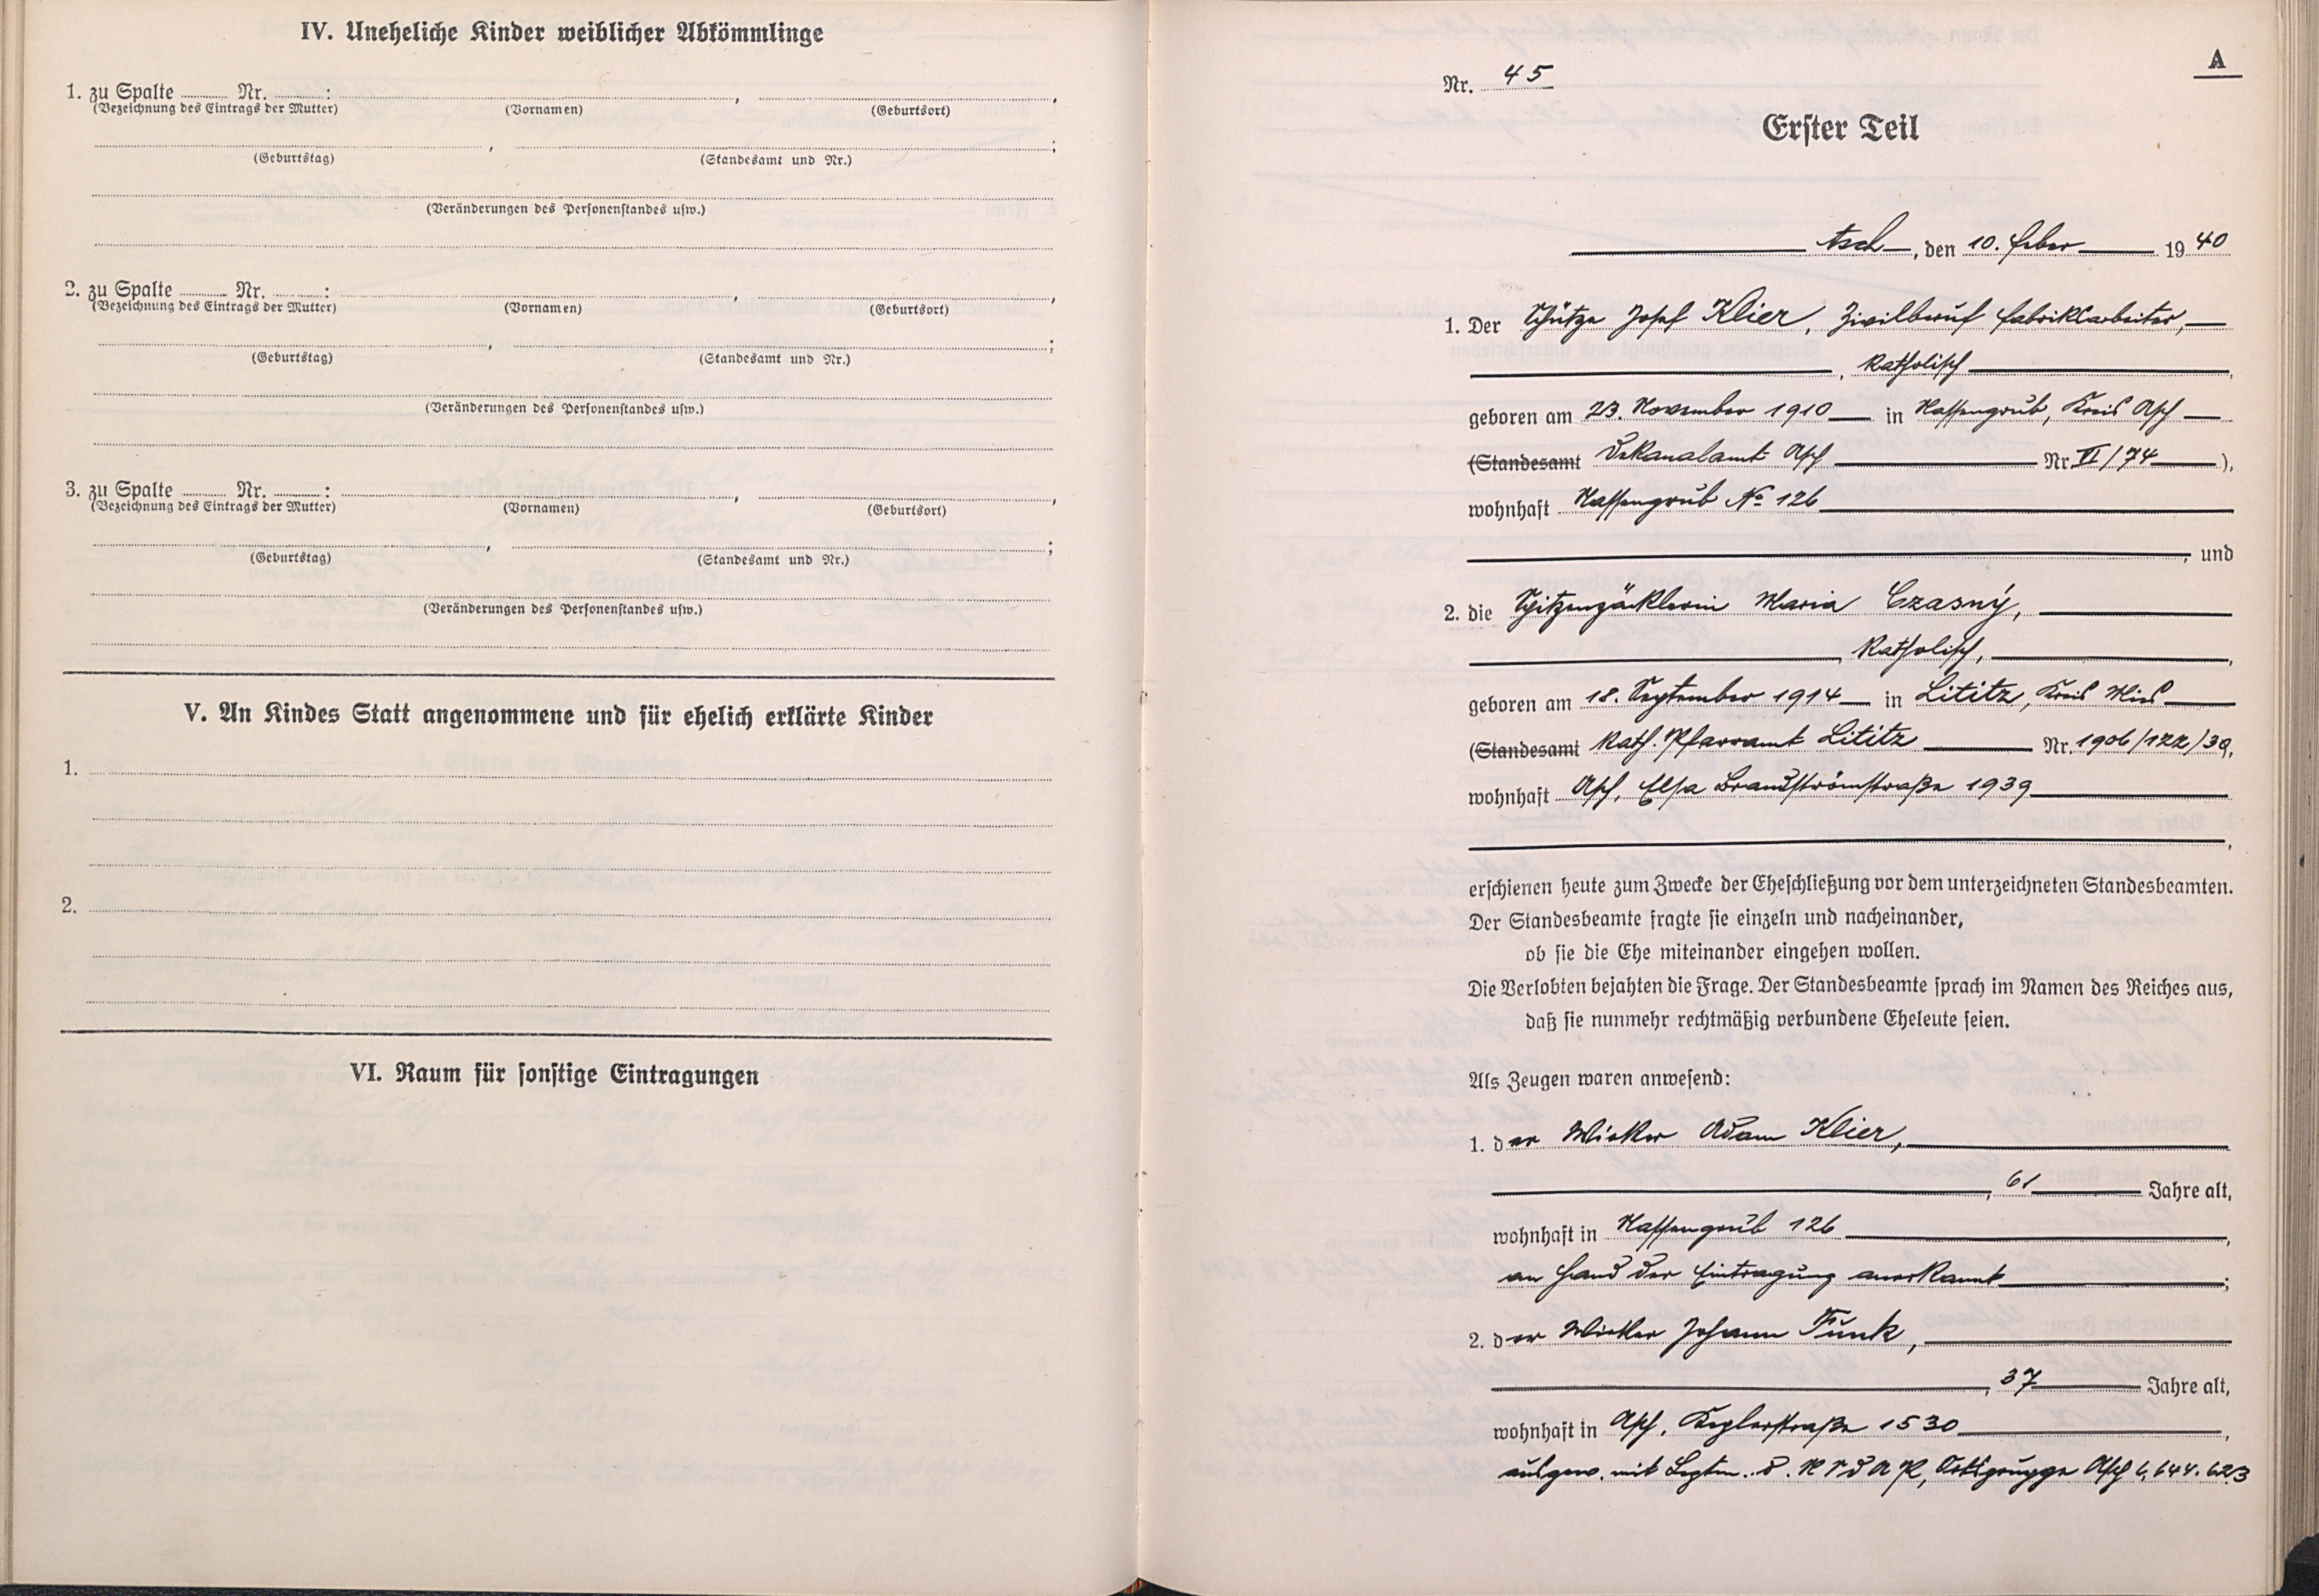 IV. Uneheliche Kinder weiblicher Abkömmlinge
1. zu Spalte ........ Nr. ........ : ........ , ........ ,
(Bezeichnung des Eintrags der Mutter) (Vornamen) (Geburtsort)
........ , ........ ;
(Geburtstag) (Standesamt und Nr.)
(Veränderungen des Personenstandes usw.)
2. zu Spalte ........ Nr. ........ : ........ , ........ ,
(Bezeichnung des Eintrags der Mutter) (Vornamen) (Geburtsort)
........ , ........ ;
(Geburtstag) (Standesamt und Nr.)
(Veränderungen des Personenstandes usw.)
3. zu Spalte ........ Nr. ........ : ........ , ........ ,
(Bezeichnung des Eintrags der Mutter) (Vornamen) (Geburtsort)
........ , ........ ;
(Geburtstag) (Standesamt und Nr.)
(Veränderungen des Personenstandes usw.)
V. An Kindes Statt angenommene und für ehelich erklärte Kinder
1.
2.
VI. Raum für sonstige Eintragungen
A
Nr. 45
Erster Teil
Asch, den 10. Feber 1940
1. Der Schütze Josef Klier, Zivilberuf Fabriklarbeiter,
, katholisch,
geboren am 23. November 1910 in Nassengrub, Kreis Asch
(Standesamt Dekanalamt Asch Nr. VI/74),
wohnhaft Nassengrub No 126
, und
2. die Spitzenzäcklerin Maria Czasný,
, katholisch,
geboren am 18. September 1914 in Lititz, Kreis Mies
(Standesamt Kath. Pfarramt Lititz Nr. 1906/122/38,
wohnhaft Asch, Elsa Brandströmstraße 1939
,
erschienen heute zum Zwecke der Eheschließung vor dem unterzeichneten Standesbeamten.
Der Standesbeamte fragte sie einzeln und nacheinander,
ob sie die Ehe miteinander eingehen wollen.
Die Verlobten bejahten die Frage. Der Standesbeamte sprach im Namen des Reiches aus,
daß sie nunmehr rechtmäßig verbundene Eheleute seien.
Als Zeugen waren anwesend:
1. der Wirker Adam Klier,
, 61 Jahre alt,
wohnhaft in Nassengrub 126,
an Hand der Eintragung anerkannt;
2. der Wirker Johann Funk,
, 37 Jahre alt,
wohnhaft in Asch, Keglerstraße 1530,
ausgew. mit d. Ortsgruppe Asch 6,644.623